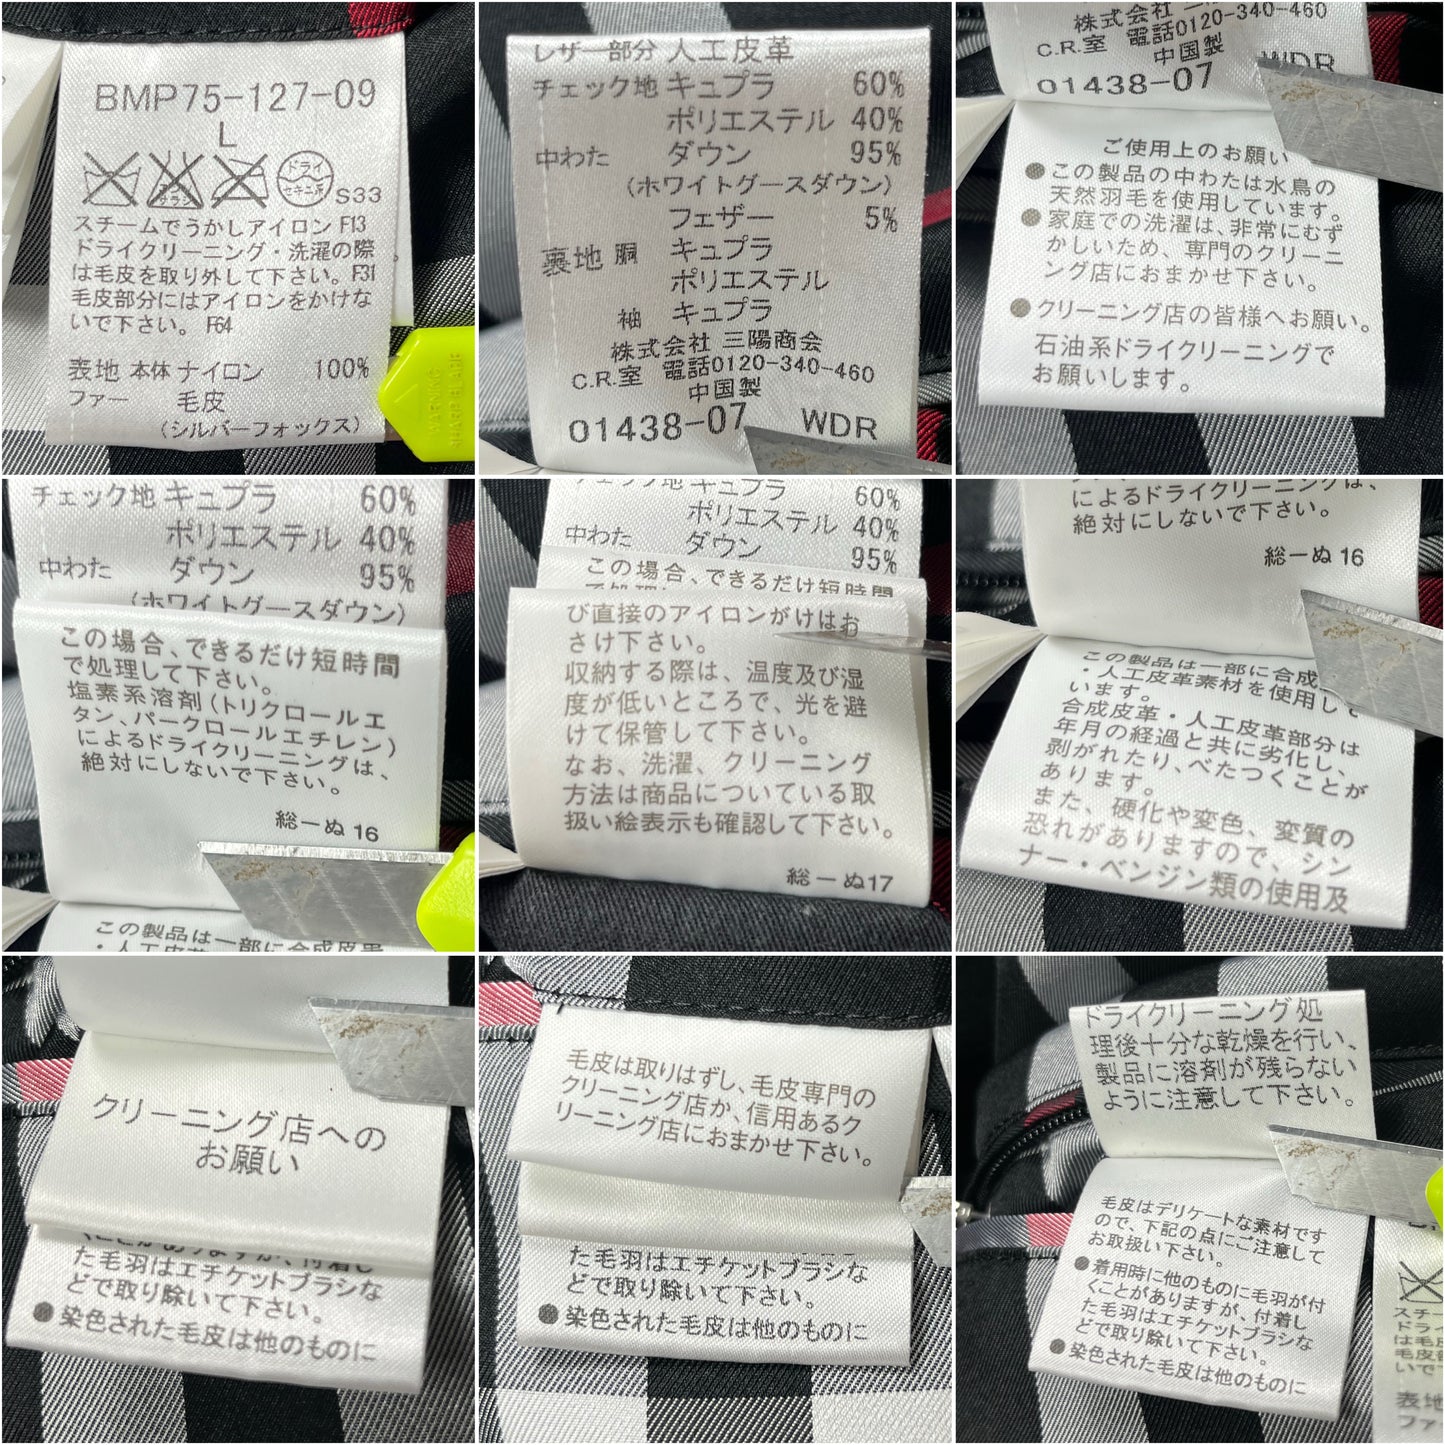 BMP75-127-09
L
ドライ
セキユ系
S33
スチームでうかしアイロン F13
ドライクリーニング・洗濯の際
は毛皮を取り外して下さい。F31
毛皮部分にはアイロンをかけな
いで下さい。 F64
表地 本体 ナイロン 100%
ファー 毛皮
(シルバーフォックス)
レザー部分 人工皮革
チェック地 キュプラ 60%
ポリエステル 40%
中わた ダウン 95%
(ホワイトグースダウン)
フェザー 5%
裏地 胴 キュプラ
ポリエステル
袖 キュプラ
株式会社 三陽商会
C.R.室 電話0120-340-460
中国製
01438-07 WDR
株式会社
C.R.室 電話0120-340-460
中国製
01438-07 WDR
ご使用上のお願い
●この製品の中わたは水鳥の
天然羽毛を使用しています。
●家庭での洗濯は、非常にむず
かしいため、専門のクリーニ
ング店におまかせ下さい。
●クリーニング店の皆様へお願い。
石油系ドライクリーニングで
お願いします。
チェック地 キュプラ 60%
ポリエステル 40%
中わた ダウン 95%
(ホワイトグースダウン)
この場合、できるだけ短時間
で処理して下さい。
塩素系溶剤(トリクロールエ
タン、パークロールエチレン)
によるドライクリーニングは、
絶対にしないで下さい。
総一ぬ16
この製品は一部に合成皮革
チェック地 キュプラ 60%
ポリエステル 40%
中わた ダウン 95%
この場合、できるだけ短時間
び直接のアイロンがけはお
さけ下さい。
収納する際は、温度及び湿
度が低いところで、光を避
けて保管して下さい。
なお、洗濯、クリーニング
方法は商品についている取
扱い絵表示も確認して下さい。
総一ぬ17
によるドライクリーニングは、
絶対にしないで下さい。
総一ぬ16
この製品は一部に合成
・人工皮革素材を使用して
います。
合成皮革・人工皮革部分は
年月の経過と共に劣化し、
剥がれたり、べたつくことが
あります。
また、硬化や変色、変質の
恐れがありますので、シン
ナー・ベンジン類の使用及
クリーニング店への
お願い
た毛羽はエチケットブラシな
どで取り除いて下さい。
●染色された毛皮は他のものに
毛皮は取りはずし、毛皮専門の
クリーニング店か、信用あるク
リーニング店におまかせ下さい。
た毛羽はエチケットブラシな
どで取り除いて下さい。
●染色された毛皮は他のものに
ドライクリーニング処
理後十分な乾燥を行い、
製品に溶剤が残らない
ように注意して下さい。
毛皮はデリケートな素材です
ので、下記の点にご注意して
お取扱い下さい。
●着用時に他のものに毛羽が付
くことがありますが、付着し
た毛羽はエチケットブラシな
どで取り除いて下さい。
●染色された毛皮は他のものに
スチー
ドライ
は毛皮
毛皮部
いで下
表地
ファー